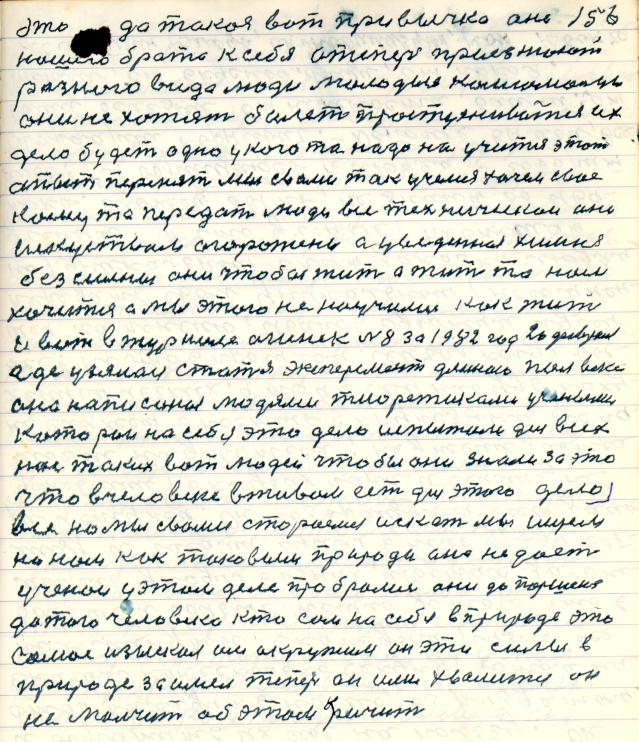 это да такоя вот привычка оно 156
нашего брата к себя а теперь приезжают
разного вида люди молодыя комсомольцы
они не хотят болеть простуживатся их
дело будет одно у кого та надо научится этот
опыт перенят мы свами так учемся хочем свае
кому та передат люди все техническои они
искуством огорожены а уведенная химия
безсильны они чтобы жит а жит та нам
хочится а мы этого не научились как жить
И вот в журнале огинек N8 за 1982 год 20 февраля
где узялас статя эксперемент длиною полвека
она написаная людями тиоретиками учеными
которои на себя это дело испытали для всех
нас таких вот людей чтобы они знали за это
что в человеке в живом ест для этого дело
все но мы свами стораемся искат мы ищем
но нам как таковым природа она не дает
ученои у этом деле пробрались они до поршеня
до того человека кто сам на себя в природе это
самое изыскал ои окружил он эти силы в
природе заимел тепер он ими хвалится он
не молчит об этом речит